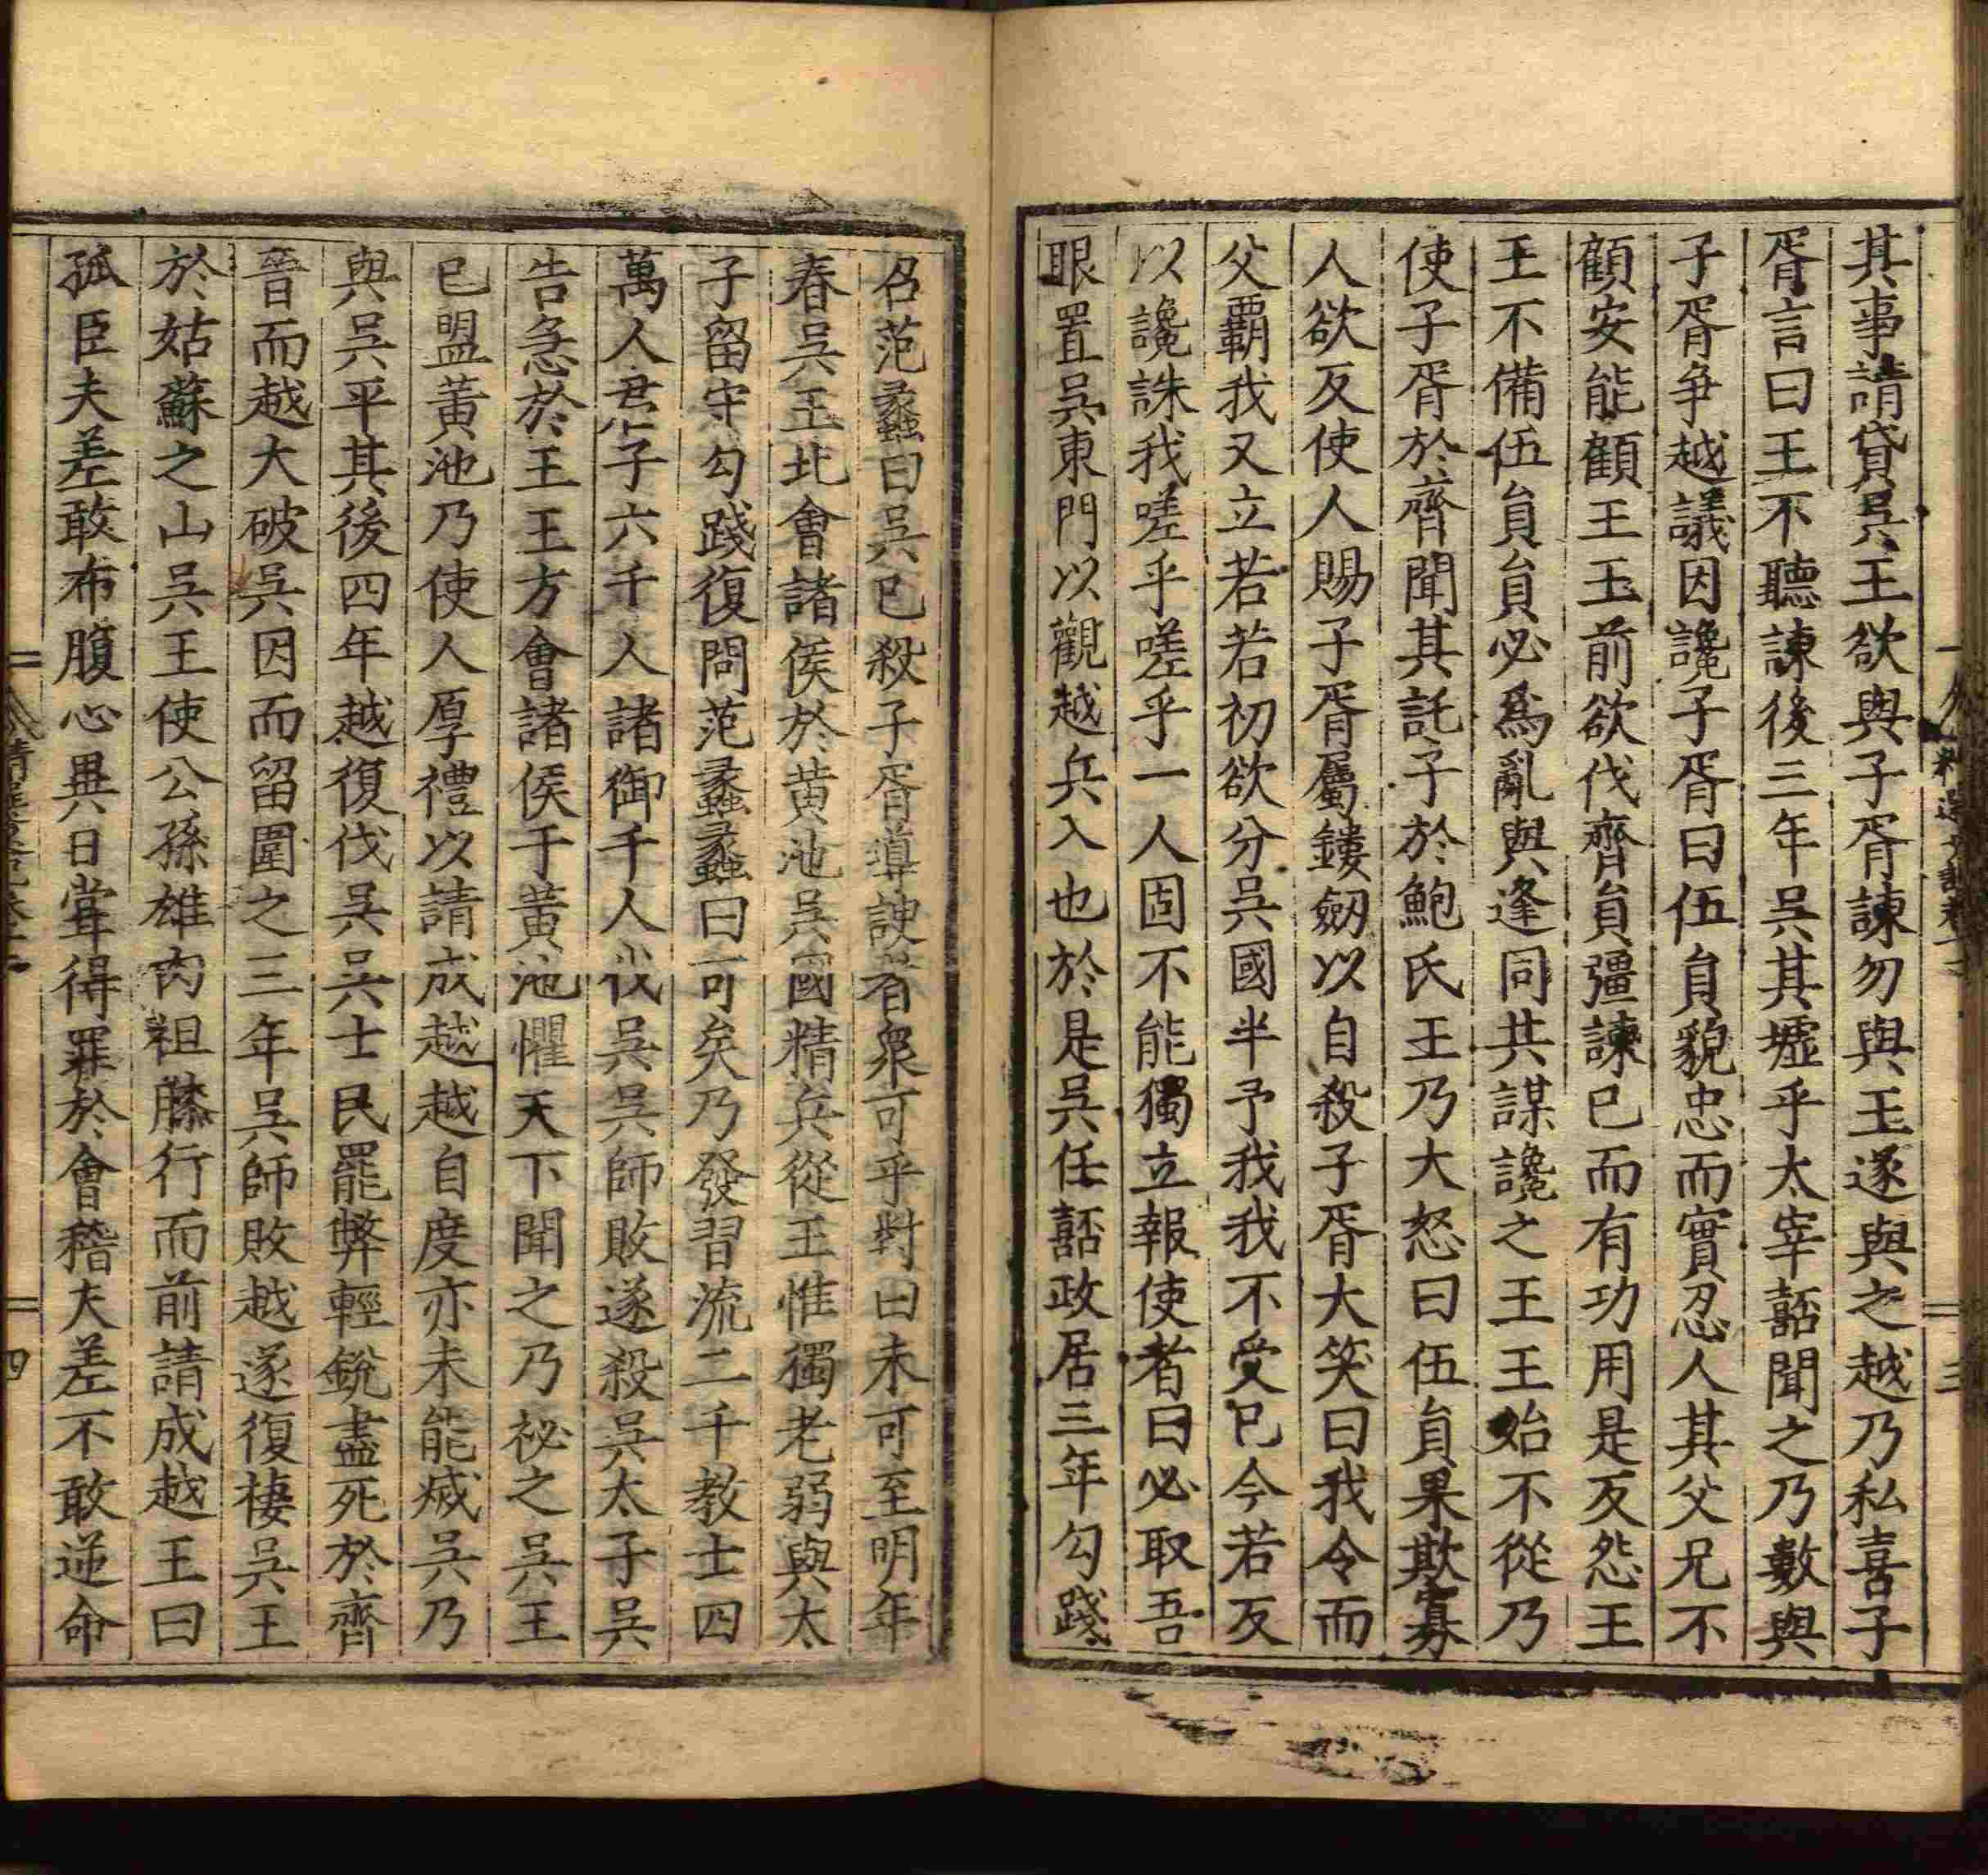 其事請貸吳王欲與子胥諫勿與王遂與之越乃私喜子
胥言曰王不聽諫後三年吳其墟乎太宰嚭聞之乃數與
子胥爭越議因讒子胥曰伍員貌忠而實忍人其父兄不
顧安能顧王王前欲伐齊員彊諫已而有功用是反怨王
王不備伍員員必爲亂與逢同共謀讒之王王始不從乃
使子胥於齊聞其託子於鮑氏王乃大怒曰伍員果欺寡
人欲反使人賜子胥屬鏤劒以自殺子胥大笑曰我令而
父霸我又立若若初欲分吳國半予我我不受已今若反
以讒誅我嗟乎嗟乎一人固不能獨立報使者曰必取吾
眼置吳東門以觀越兵入也於是吳任嚭政居三年勾踐
召范蠡曰吳已殺子胥導諛者衆可乎對曰未可至明年
春吳王北會諸侯於黃池吳國精兵從王惟獨老弱與太
子留守勾踐復問范蠡蠡曰可矣乃發習流二千教士四
萬人君子六千人諸御千人伐吳吳師敗遂殺吳太子吳
告急於王王方會諸侯于黃池懼天下聞之乃祕之吳王
已盟黃池乃使人厚禮以請成越越自度亦未能烕吳乃
與吳平其後四年越復伐吳吳士民罷弊輕銳盡死於齊
晉而越大破吳因而留圍之三年吳師敗越遂復棲吳王
於姑蘇之山吳王使公孫雄肉袒膝行而前請成越王曰
孤臣夫差敢布腹心異日嘗得罪於會稽夫差不敢逆命
三
四